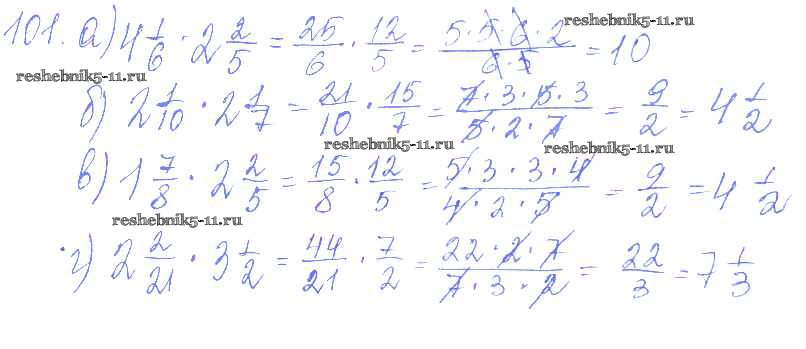 101. а) 4 1/6 · 2 2/5 = 25/6 · 12/5 = 5·5·6·2/6·5 = 10
reshebnik5-11.ru
reshebnik5-11.ru
б) 2 1/10 · 2 1/7 = 21/10 · 15/7 = 7·3·5·3/5·2·7 = 9/2 = 4 1/2
reshebnik5-11.ru
reshebnik5-11.ru
в) 1 7/8 · 2 2/5 = 15/8 · 12/5 = 5·3·3·4/4·2·5 = 9/2 = 4 1/2
reshebnik5-11.ru
г) 2 2/21 · 3 1/2 = 44/21 · 7/2 = 22·2·7/7·3·2 = 22/3 = 7 1/3